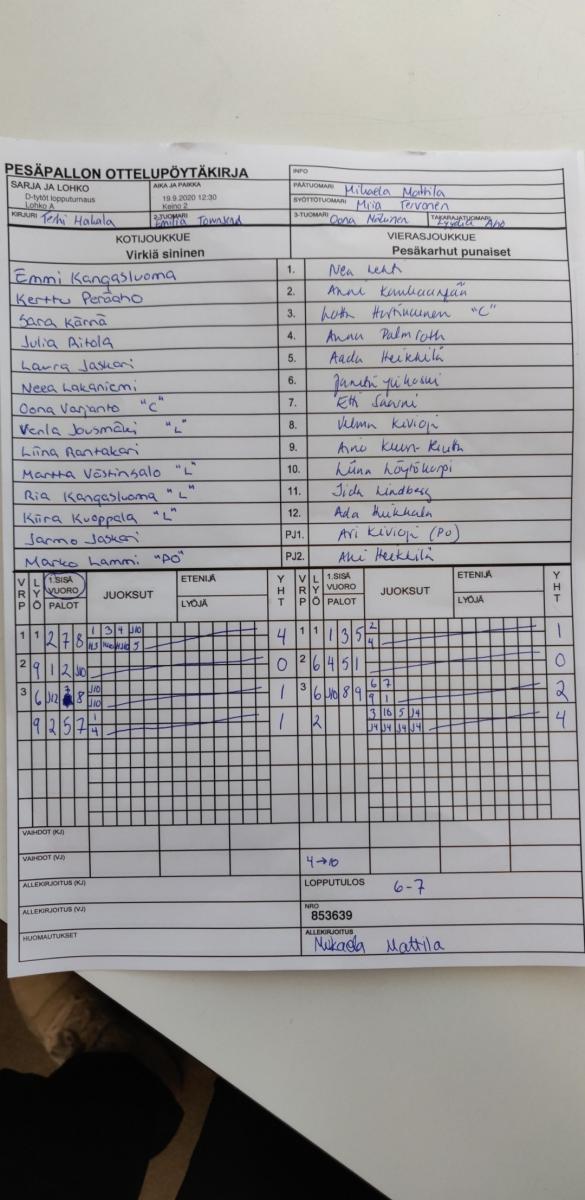 PESÄPALLON OTTELUPÖYTÄKIRJA
INFO
SARJA JA LOHKO
D-tytöt lopputurnaus
Lohko A
AIKA JA PAIKKA
19.9.2020 12:30
Keino 2
PÄÄTUOMARI Mikaela Mattila
SYÖTTÖTUOMARI Miia Tervonen
KIRJURI Terhi Hakala
2-TUOMARI Emilia Townsend
3-TUOMARI Oona
TAKARAJATUOMARI Lyydia Aho
KOTIJOUKKUE
Virkiä sininen
VIERASJOUKKUE
Pesäkarhut punaiset
Emmi Kangasluoma 1. Nea Lehti
Kerttu Peräaho 2. Anni
Sara Kärnä 3. Lotta "C"
Julia Ritola 4. Annu Palmroth
Laura Jaskari 5. Aada Heikkilä
Neea Lakaniemi 6.
Oona Varjanto "C" 7. Etti Saarni
Venla Jousmäki "L" 8. Velma Kivioja
Liina Rantakari 9. Aino
Martta Västinsalo "L" 10. Liina Löytökorpi
Ria Kangasluoma "L" 11. Iida Lindberg
Kiira Kuoppala "L" 12. Ada
Jarmo Jaskari PJ1. Ari Kivioja (PO)
Marko Lammi "PO" PJ2. Aki Heikkilä
VRP LYÖ 1.SISÄ VUORO PALOT JUOKSUT ETENIJÄ LYÖJÄ YHT VRP LYÖ 1.SISÄ VUORO PALOT JUOKSUT ETENIJÄ LYÖJÄ YHT
1 1 2 7 8 1 3 4 J10 4 1 1 1 3 5 2 4 1
2 9 1 2 J10 0 2 6 4 5 1 0
3 6 J12 8 J10 J10 1 3 6 J10 8 9 6 7 9 1 2
9 2 5 7 1 4 1 2 3 10 5 J4 J4 J4 J4 J4 4
VAIHDOT (KJ)
VAIHDOT (VJ) 4→10
ALLEKIRJOITUS (KJ) LOPPUTULOS 6-7
ALLEKIRJOITUS (VJ) NRO
853639
HUOMAUTUKSET ALLEKIRJOITUS
Mikaela Mattila